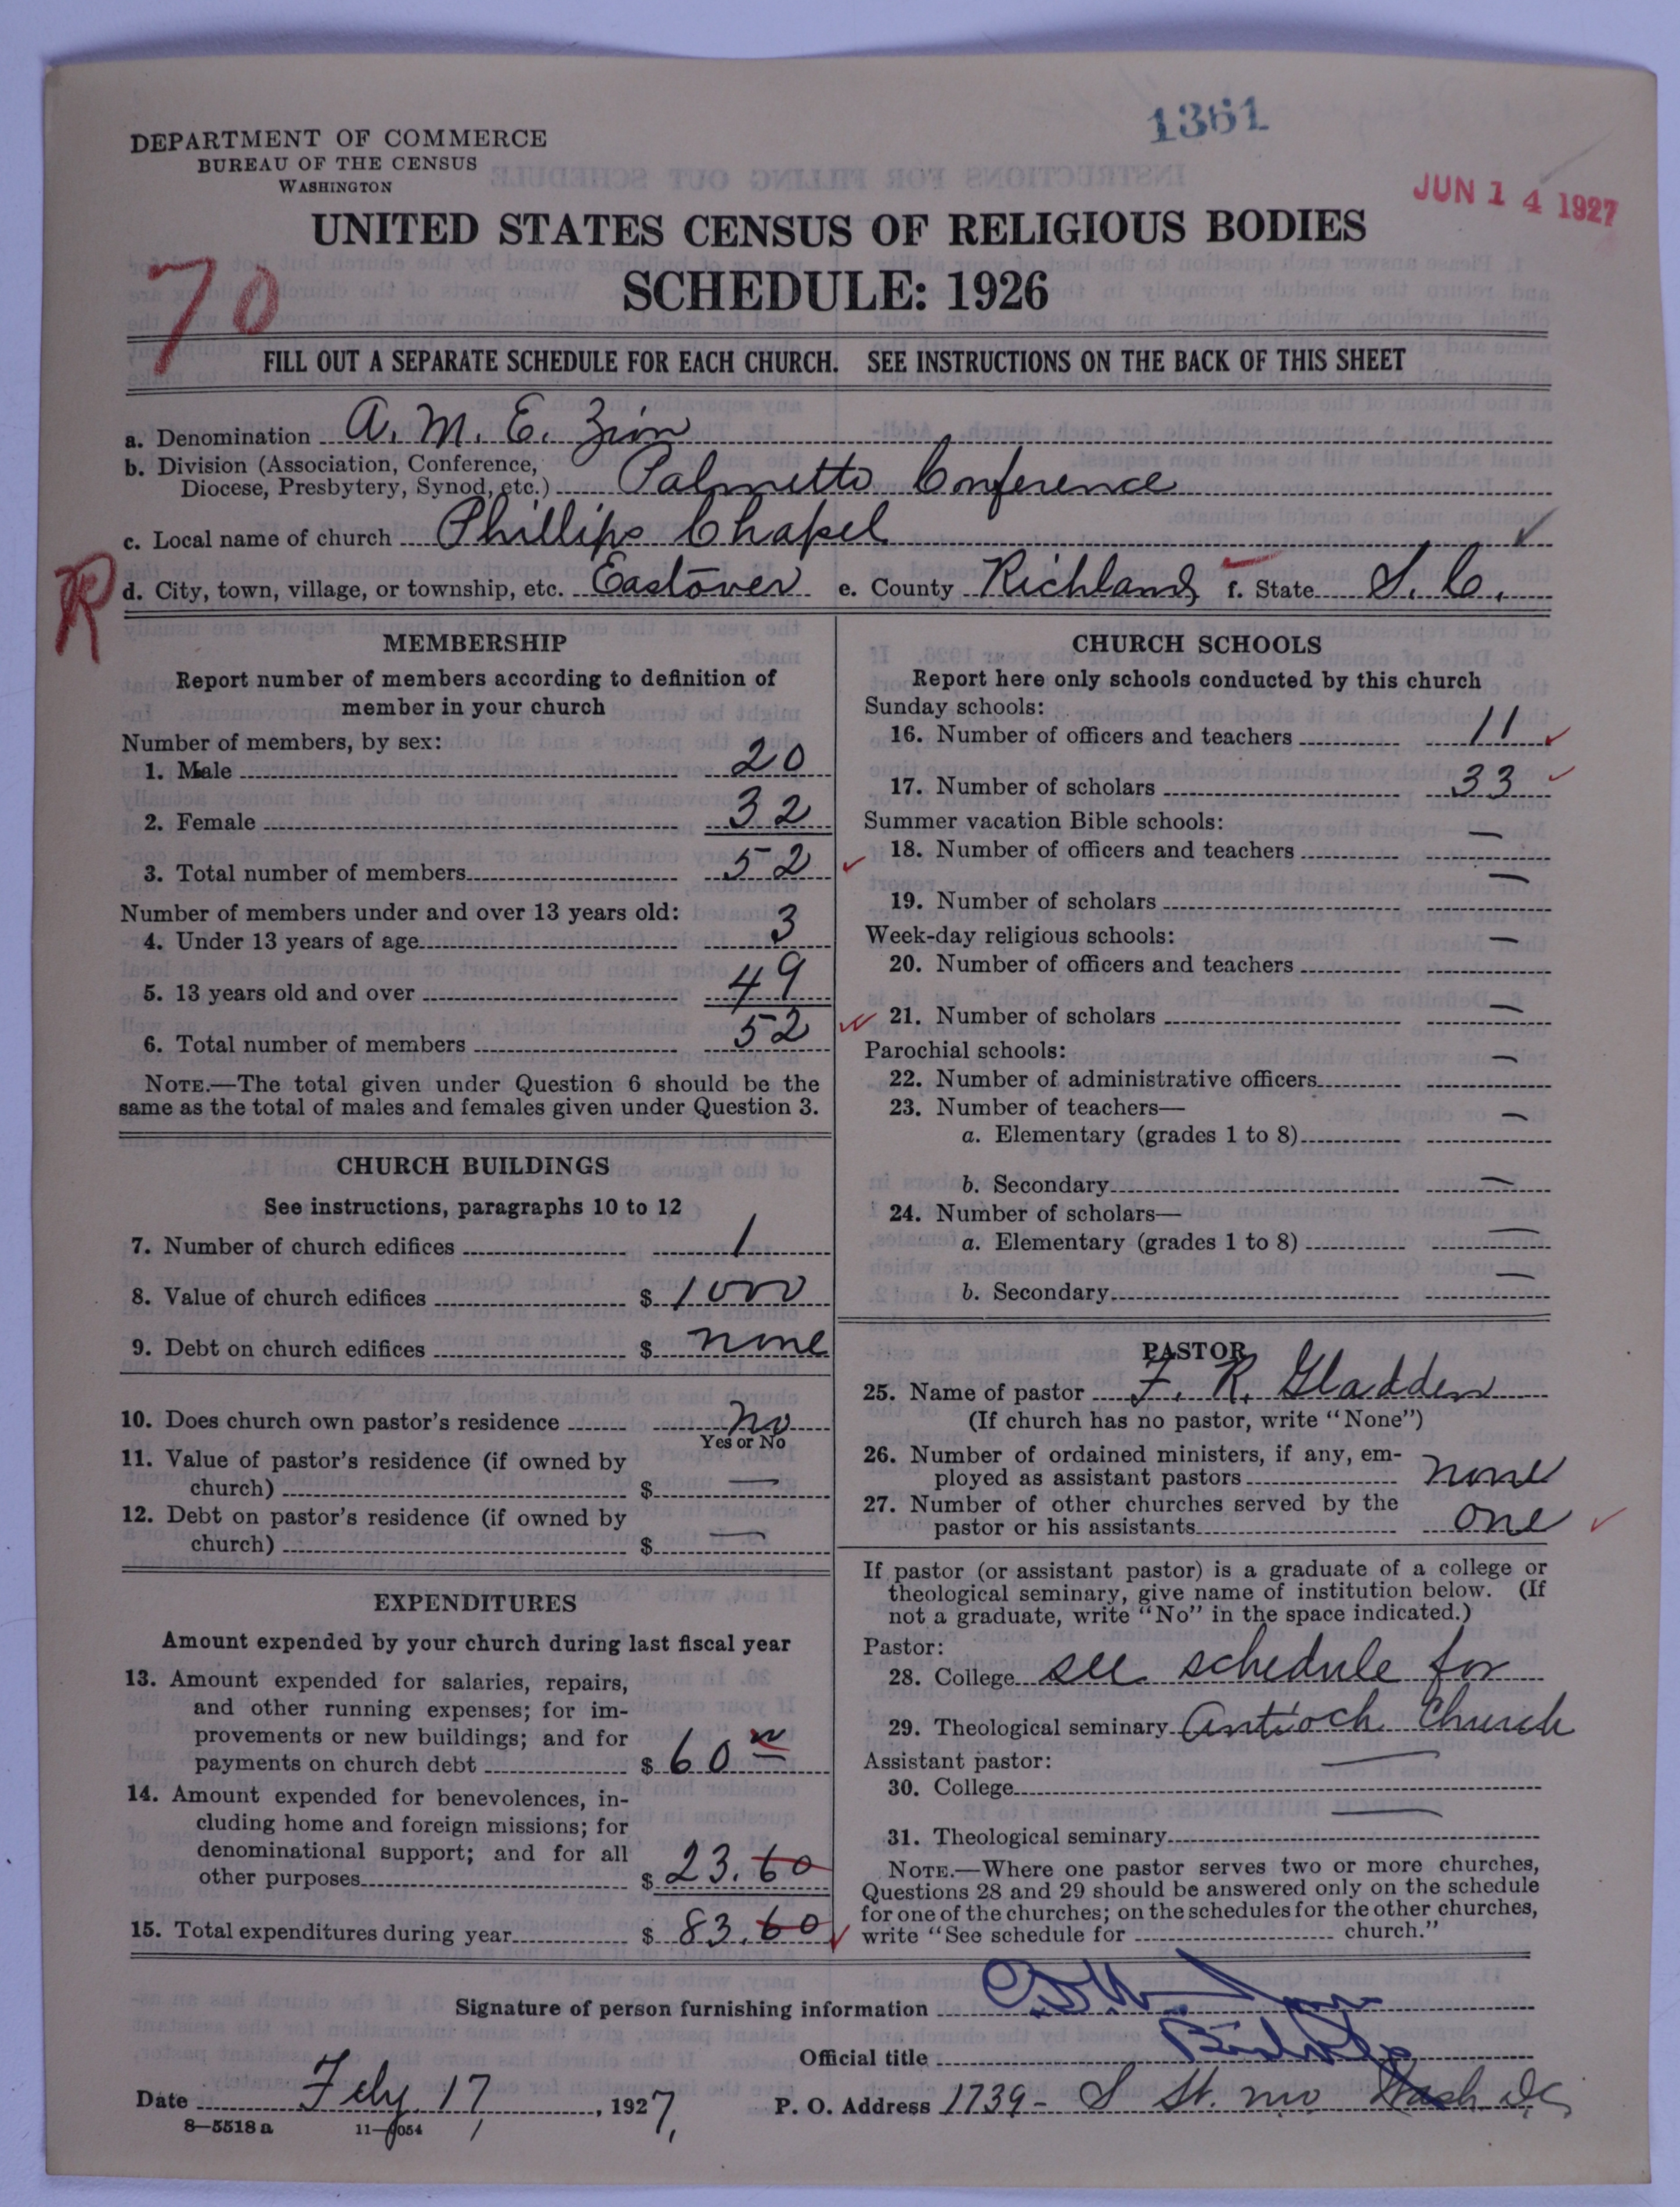 1361
DEPARTMENT OF COMMERCE
BUREAU OF THE CENSUS
WASHINGTON
JUN 14 1927
UNITED STATES CENSUS OF RELIGIOUS BODIES
SCHEDULE: 1926
70
FILL OUT A SEPARATE SCHEDULE FOR EACH CHURCH. SEE INSTRUCTIONS ON THE BACK OF THIS SHEET
a. Denomination A. M. E. Zion
b. Division (Association, Conference,
Diocese, Presbytery, Synod, etc.) Palmetto Conference
c. Local name of church Phillips Chapel
R
d. City, town, village, or township, etc. Eastover e. County Richland f. State S. C.
MEMBERSHIP
Report number of members according to definition of
member in your church
Number of members, by sex:
1. Male 20
2. Female 32
3. Total number of members 52
Number of members under and over 13 years old:
4. Under 13 years of age 3
5. 13 years old and over 49
6. Total number of members 52
NOTE.—The total given under Question 6 should be the
same as the total of males and females given under Question 3.
CHURCH BUILDINGS
See instructions, paragraphs 10 to 12
7. Number of church edifices 1
8. Value of church edifices $ 1000
9. Debt on church edifices $ none
10. Does church own pastor's residence no
Yes or No
11. Value of pastor's residence (if owned by
church) $ —
12. Debt on pastor's residence (if owned by
church) $ —
EXPENDITURES
Amount expended by your church during last fiscal year
13. Amount expended for salaries, repairs,
and other running expenses; for im-
provements or new buildings; and for
payments on church debt $ 60 00
14. Amount expended for benevolences, in-
cluding home and foreign missions; for
denominational support; and for all
other purposes $ 23.60
15. Total expenditures during year $ 83.60
CHURCH SCHOOLS
Report here only schools conducted by this church
Sunday schools:
16. Number of officers and teachers 11
17. Number of scholars 33
Summer vacation Bible schools:
18. Number of officers and teachers —
19. Number of scholars —
Week-day religious schools:
20. Number of officers and teachers —
21. Number of scholars —
Parochial schools:
22. Number of administrative officers —
23. Number of teachers—
a. Elementary (grades 1 to 8) —
b. Secondary —
24. Number of scholars—
a. Elementary (grades 1 to 8) —
b. Secondary —
PASTOR
25. Name of pastor F. R. Gladden
(If church has no pastor, write "None")
26. Number of ordained ministers, if any, em-
ployed as assistant pastors none
27. Number of other churches served by the
pastor or his assistants one
If pastor (or assistant pastor) is a graduate of a college or
theological seminary, give name of institution below. (If
not a graduate, write "No" in the space indicated.)
Pastor:
28. College see schedule for
29. Theological seminary Antioch Church
Assistant pastor:
30. College —
31. Theological seminary —
NOTE.—Where one pastor serves two or more churches,
Questions 28 and 29 should be answered only on the schedule
for one of the churches; on the schedules for the other churches,
write "See schedule for church."
Signature of person furnishing information
Official title
Date Feby. 17, 1927,
P. O. Address 1739 - S St. nw Wash D.C.
8—5518 a
11—9054